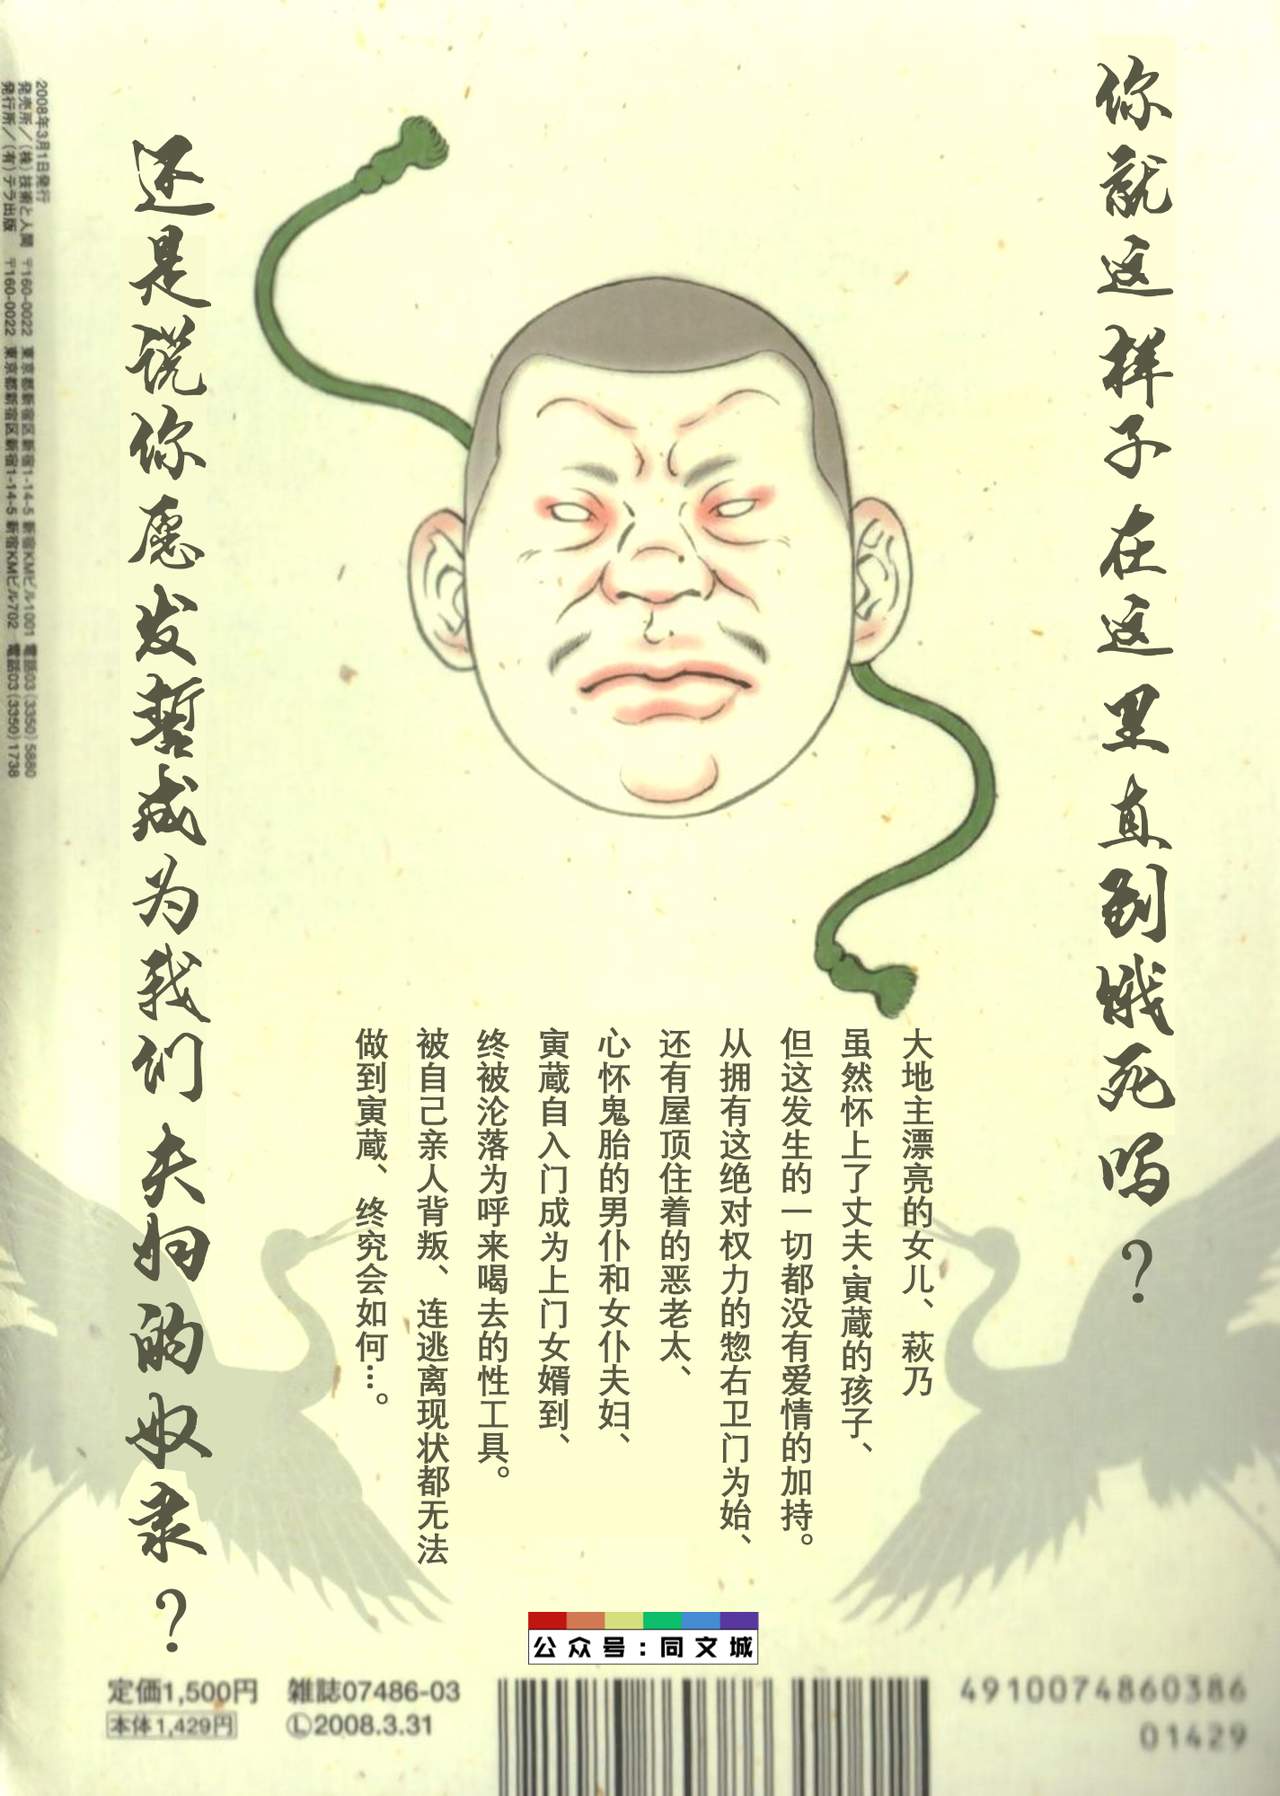 你就这样子在这里直到饿死吗？
还是说你愿发誓成为我们夫妇的奴隶？
大地主漂亮的女儿、萩乃
虽然怀上了丈夫·寅蔵的孩子、
但这发生的一切都没有爱情的加持。
从拥有这绝对权力的惣右卫门为始、
还有屋顶住着的恶老太、
心怀鬼胎的男仆和女仆夫妇、
寅蔵自入门成为上门女婿到、
终被沦落为呼来喝去的性工具。
被自己亲人背叛、连逃离现状都无法
做到寅蔵、终究会如何…。
2008年3月1日発行
発売所／(株)技術と人間 〒160-0022 東京都新宿区新宿1-14-5 新宿KMビル1001 電話03(3350)5880
発行所／(有)テラ出版 〒160-0022 東京都新宿区新宿1-14-5 新宿KMビル702 電話03(3350)1738
公众号:同文城
定価1,500円 雑誌07486-03
本体1,429円 Ⓛ2008.3.31
4910074860386
01429